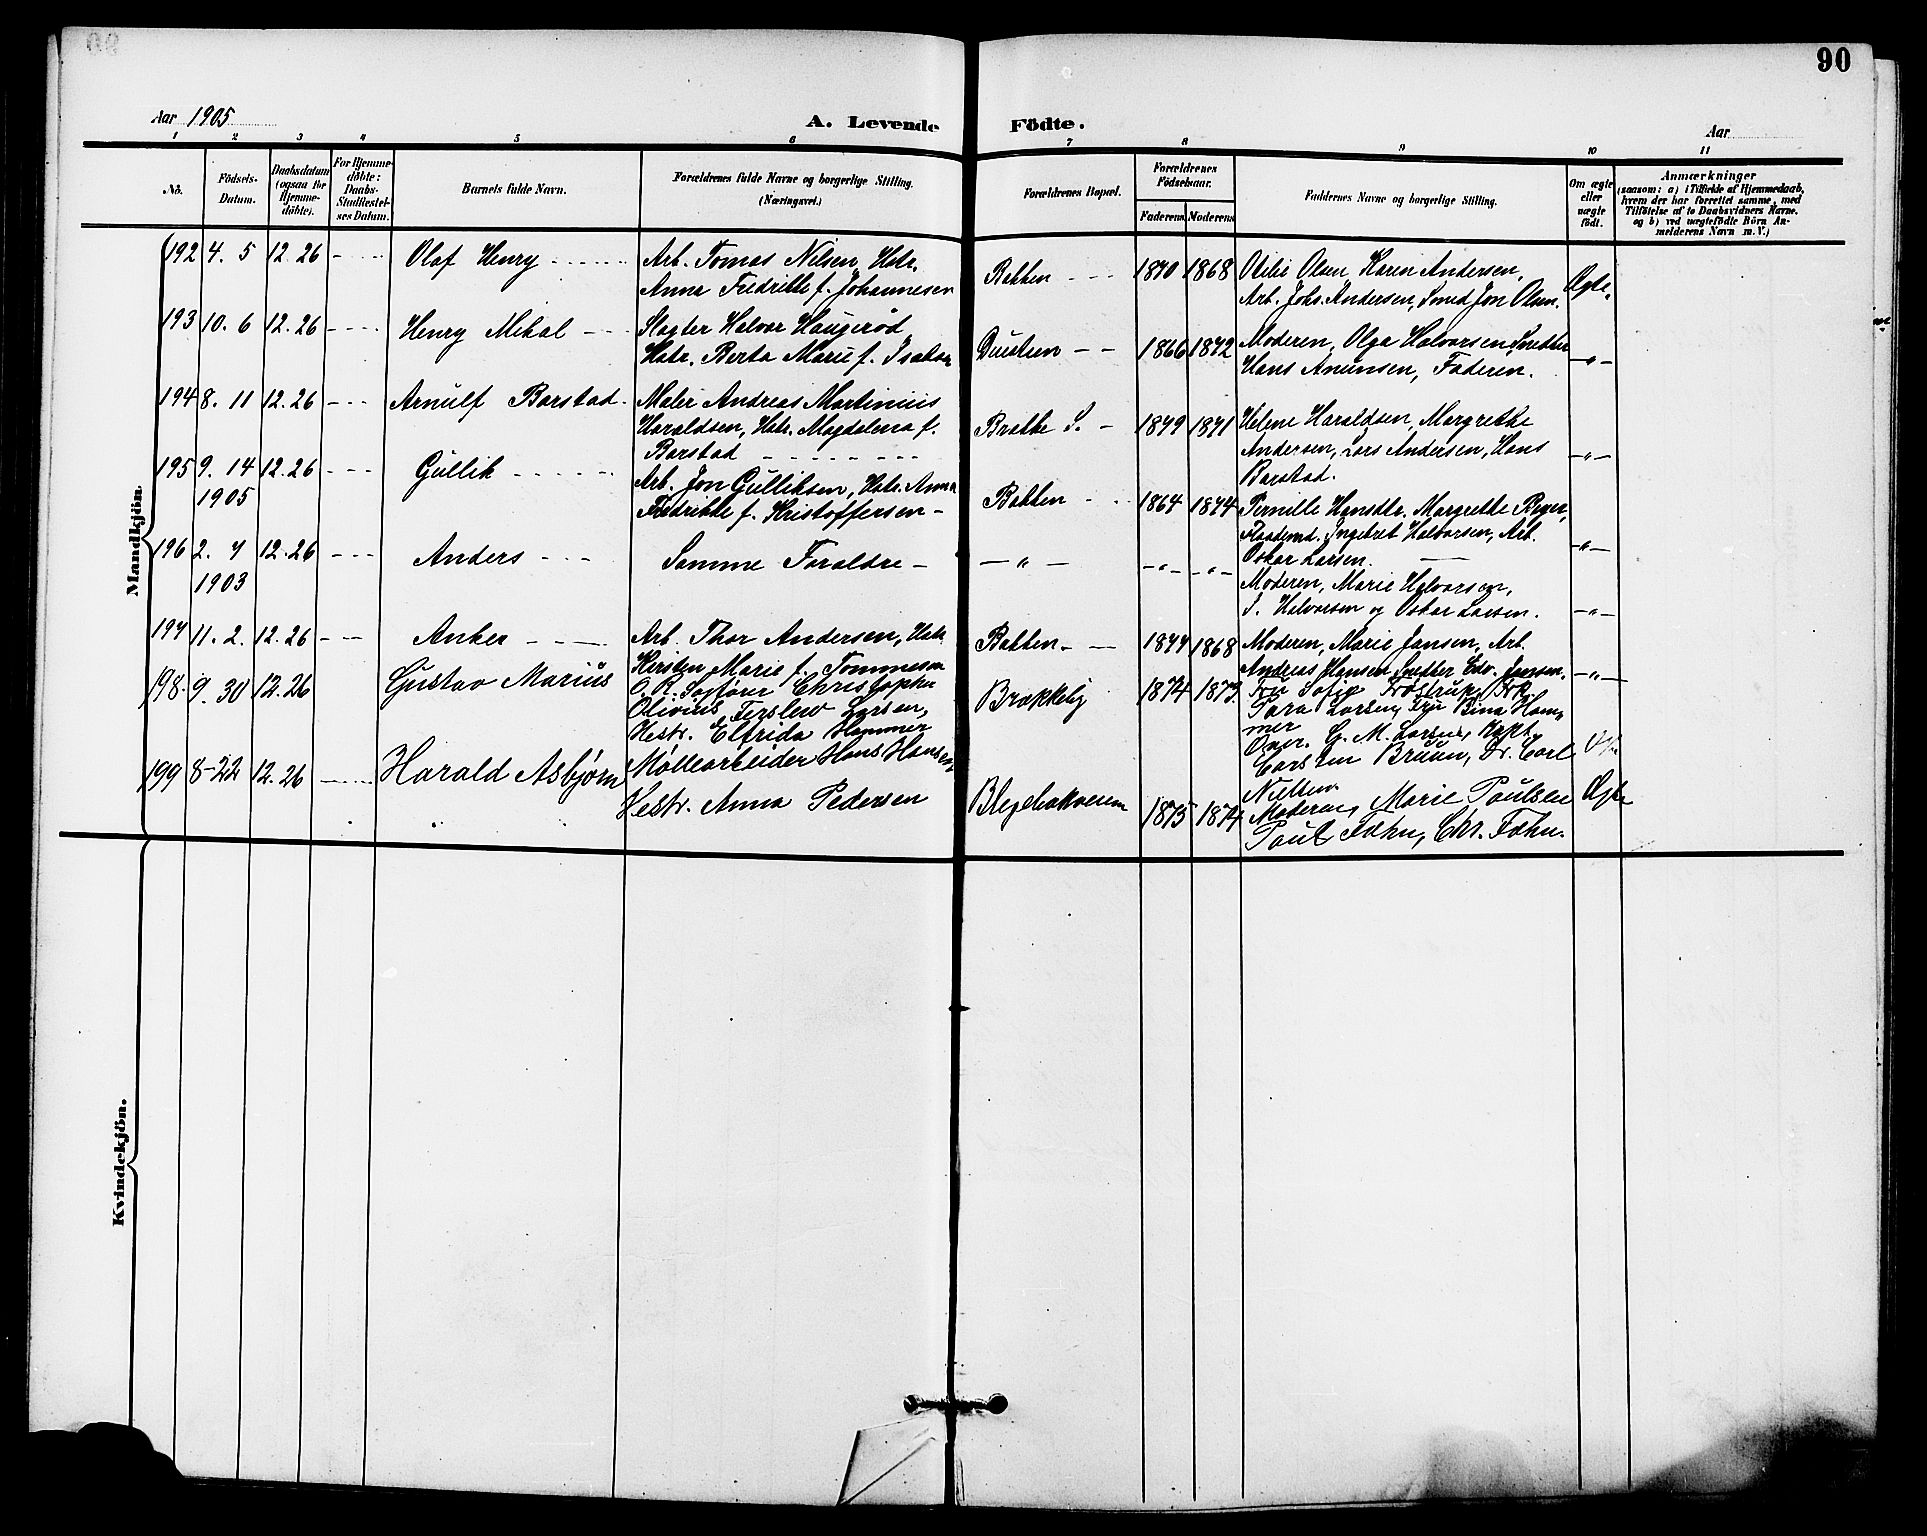 90
Aar 1905
A. Levende Födte.
Aar
1 2 3 4 5 6 7 8 9 10 11
No.
Födsels-Datum.
Daabsdatum (ogsaa for Hjemme-döbte).
For Hjemme-döbte: Daabs-Stadfæstel-ses Datum.
Barnets fulde Navn.
Forældrenes fulde Navne og borgerlige Stilling. (Næringsvei.)
Forældrenes Bopæl.
Forældrenes Födselsaar.
Faderens Moderens
Faddernes Navne og borgerlige Stilling.
Om ægte eller uægte födt.
Anmærkninger
(saasom: a) i Tilfælde af Hjemmedaab,
hvem der har forrettet samme, med
Tilföielse af to Daabsvidners Navne,
og b) ved uægtefödte Börn An-
melderens Navn m. V.)
Mandkjön.
192 4. 5 12. 26 - - - Olaf Henry - - - Arb. Tomas Nilsen, Hstr.
Anna Fredrikke f. Johannesen
Bakken - - - 1870 1868 Otilie Olsen, Karen Andersen,
Arb. Johs. Andersen, Smed Jon Olsen. Ægte.
193 10. 6 12. 26 - - - Henry Mikal - - Slagter Halvor Haugerød
Hstr. Berta Marie f. Isaksen
- - 1866 1872 Moderen, Olga Halvorsen, Snedker
Hans Amunsen, Faderen. - " -
194 8. 11 12. 26 - - - Arnulf Barstad - Maler Andreas Martinius
Haraldsen, Hstr. Magdalena f.
Barstad - - - -
Brække S. - 1879 1871 Helene Haraldsen, Margrethe
Andersen, Lars Andersen, Hans
Barstad. - " -
195 9. 14 12. 26 - - - Gullik - - - Arb. Jon Gulliksen, Hstr. Anna
1905 Fredrikke f. Kristoffersen -
Bakken - - 1864 1874 Pernille Hansdtr. Margrethe Berger,
Ingebret Halvorsen, Arb.
Oskar Larsen. - " -
196 2. 7 12. 26 - - - Anders - - - Samme Foraldre -
1903
- " - - " - - " - Moderen, Marie Halvorsen,
I. Halvorsen og Oskar Larsen. - " -
197 11. 2. 12. 26 - - - Anker - - - Arb. Thor Andersen, Hstr.
Kirsten Marie f. Tommesen
Bakken - - 1877 1868 Moderen, Marie Jansen, Arb.
Andreas Hansen, Snekker Edv. Jansen. - " -
198. 9. 30 12. 26 Gustav Marius O. R. Sagfører Christopher
Olivius Terslew Larsen,
Hestr. Elfrida Hammer
Brækkeby 1874 1873. Fru Sofie Frostrup, Frk.
Tara Larsen, Fru Bina Ham-
mer
G. M. Larsen, Kapt.
Carsten Bruun, Dr. Carl
Nielsen
199 8-22 12. 26 - - - Harald Asbjørn Møllearbeider Hans Hansen
Hestr. Anna Pedersen
1875 1874 Moderen, Marie Paulsen
Paul Fæhn, Chr. Fæhn. Ægte
Kvindekjön.